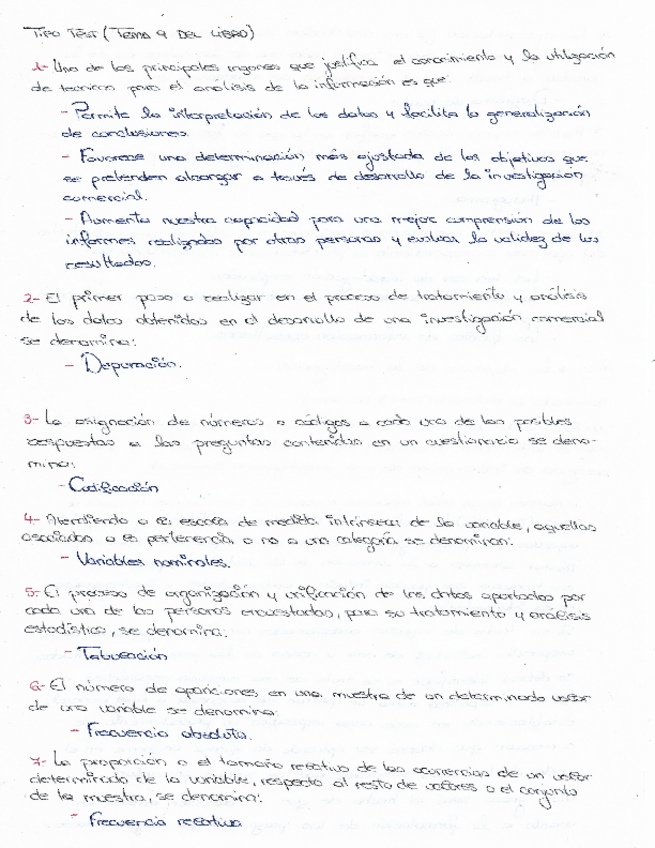 TIPO TEST (TEMA 9 DEL LIBRO)
1- Uno de los principales ingones que justifica el conocimiento y la utilización
de tecnicas para el análisis de la información es que:
- Permite la interpretación de los datos y facilita la generalización
de conclusiones.
- Favorece una determinación más ajustada de los objetivos que
se pretenden alcanzar a través de desarrollo de la investigación
comercial.
- Aumenta nuestra capacidad para una mejor comprensión de los
informes realizados por otras personas y evaluar la validez de los
resultados.
2- El primer paso a realizar en el proceso de tratamiento y análisis
de los datos obtenidos en el desarrollo de una investigación comercial
se denomina:
- Depuración.
3- La asignación de números o códigos a cada una de las posibles
respuestas a las preguntas contenidas en un cuestionario se deno-
mina:
- Codificación
4- Atendiendo a la escala de medida intrínseca de la variable, aquellas
asociadas a la pertenencia o no a una categoría se denominan:
- Variables nominales.
5- El proceso de organización y unificación de los datos aportados por
cada una de las personas encuestadas, para su tratamiento y análisis
estadístico, se denomina:
- Tabulación
6- El número de apariciones, en una muestra de un determinado valor
de una variable se denomina:
- Frecuencia absoluta.
7- La proporción o el tamaño relativo de las ocurrencias de un valor
determinado de la variable, respecto al resto de valores o el conjunto
de la muestra, se denomina:
- Frecuencia relativa